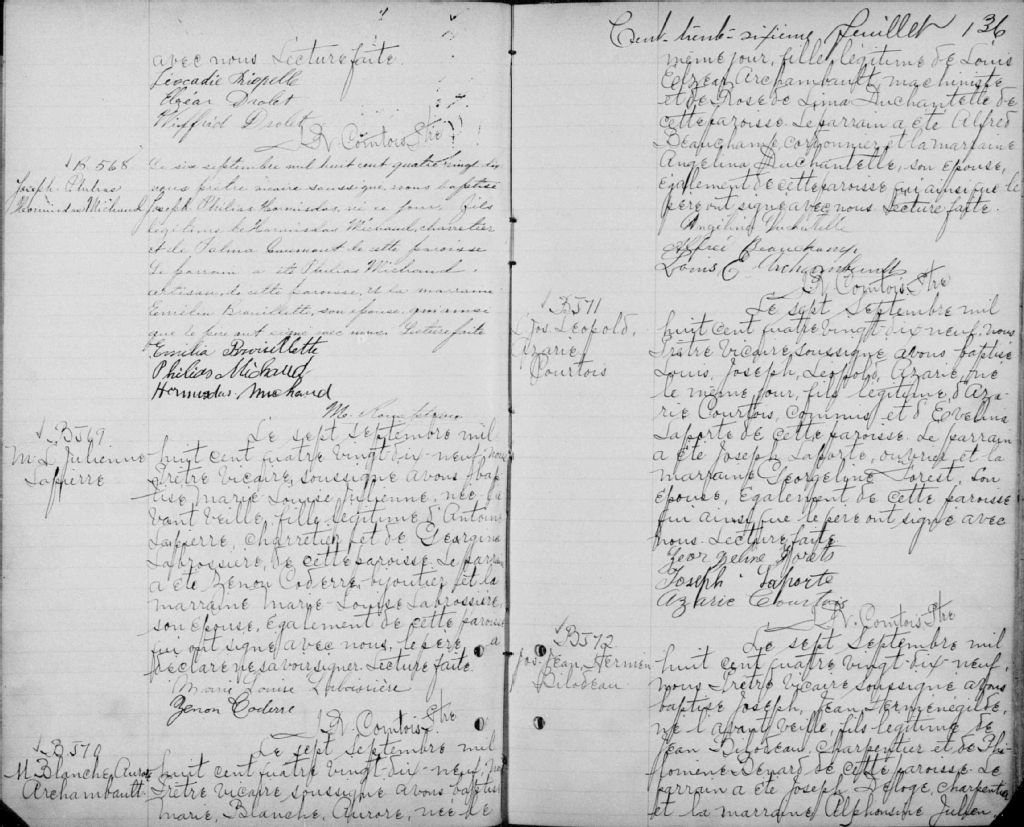 avec nous. Lecture faite.
Léocadie Riopelle
Elzéar Drolet
Wilfrid Drolet
N. Comtois Ptre
B. 568
Joseph Philias
Hormisdas Michaud
Le six septembre mil huit cent quatre vingt dix
nous prêtre vicaire soussigné, avons baptisé
Joseph Philias Hormisdas, né ce jour, fils
légitime de Hormisdas Michaud, charretier
et de Palma de cette paroisse
Le parrain a été Philias Michaud
artisan, de cette paroisse, et la marraine
Emélie Brouillette, son épouse, qui ainsi
que le père ont signé avec nous. Lecture faite
Emilia Brouillette
Philias Michaud
Hormisdas Michaud
B569
M. L. Julienne
Lapierre
Le sept Septembre mil
huit cent quatre vingt-dix-neuf, nous
Prêtre Vicaire, soussigné avons bap-
tisé, Marie Louise Julienne, née l'a-
vant veille, fille légitime d'Antoine
Lapierre, charretier et de Georgina
Labrossière, de cette paroisse. Le parrain
a été Zénon Coderre, bijoutier et la
marraine Marie-Louise Labrossière,
son épouse, également de cette paroisse
qui ont signé avec nous, le père a
déclaré ne savoir signer. Lecture faite.
Marie Louise Laboissière
Zenon Coderre
N. Comtois Ptre
B570
M. Blanche, Aurore
Archambault
Le sept Septembre mil
huit cent quatre vingt-dix-neuf, nous
Prêtre vicaire soussigné avons baptisé
Marie, Blanche, Aurore, née le
Cent-trente-sixième feuillet 136
même jour, fille légitime de Louis
Elzéar Archambault, machiniste
et de Rose de Lima Duchantelle de
cette paroisse. Le parrain a été Alfred
Beauchamp, cordonnier et la marraine
Angélina Duchantelle, son épouse,
également de cette paroisse qui ainsi que le
père ont signé avec nous. Lecture faite.
Angélina
Alfred Beauchamp
Louis E Archambault
N. Comtois Ptre
B571
Jos. Léopold,
Azarie
Courtois
Le sept Septembre mil
huit cent quatre vingt-dix-neuf, nous
Prêtre Vicaire, soussigné avons baptisé
Louis, Joseph, Léopold, Azarie, né
le même jour, fils légitime d'Aza-
rie Courtois, Commis et d'Evelina
Laporte de cette paroisse. Le parrain
a été Joseph Laporte, ouvrier et la
marraine Georgeline Forest, son
épouse, également de cette paroisse
qui ainsi que le père ont signé avec
nous. Lecture faite.
Joseph Laporte
Azarie Courtois
N. Comtois Ptre
B572
Jos. Jean, Hermén
Bilodeau
Le sept Septembre mil
huit cent quatre vingt-dix-neuf,
nous Prêtre Vicaire soussigné avons
baptisé Joseph, Jean, Herménégilde,
né l'avant veille, fils légitime de
Jean Bilodeau, charpentier et de Phi-
lomène Benard de cette paroisse. Le
parrain a été Joseph Deloge, charpentier
et la marraine Alphonsine Julien,